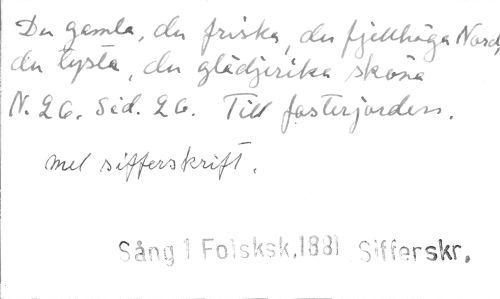 Du gamla, du friska, du fjellhöga Nord,
du tysta, du glädjerika sköna
N. 26. Sid. 26. Till fosterjorden.
mel sifferskrift.
Sång 1 Folsksk.1881 Sifferskr.